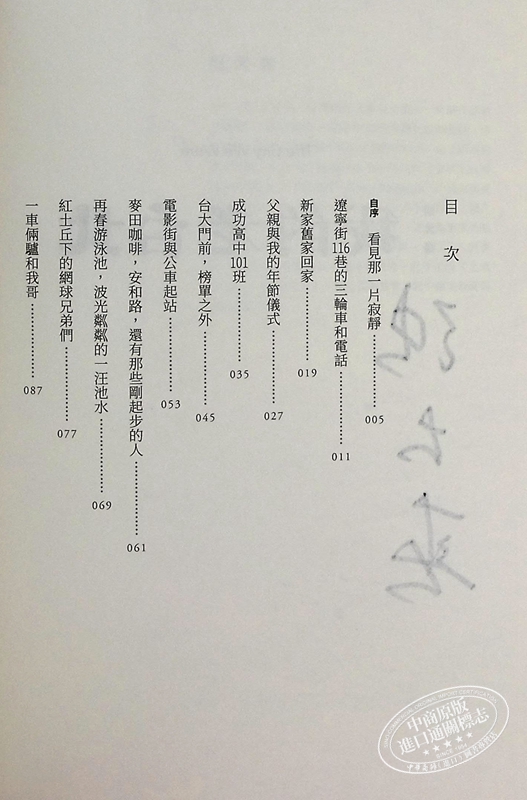 目次
自序 看見那一片寂靜 005
遼寧街116巷的三輪車和電話 011
新家舊家回家 019
父親與我的年節儀式 027
成功高中101班 035
台大門前，榜單之外 045
電影街與公車起站 053
麥田咖啡，安和路，還有那些剛起步的人 061
再春游泳池，波光粼粼的一汪池水 069
紅土丘下的網球兄弟們 077
一車倆驢和我哥 087
中商原版
進口通關標志